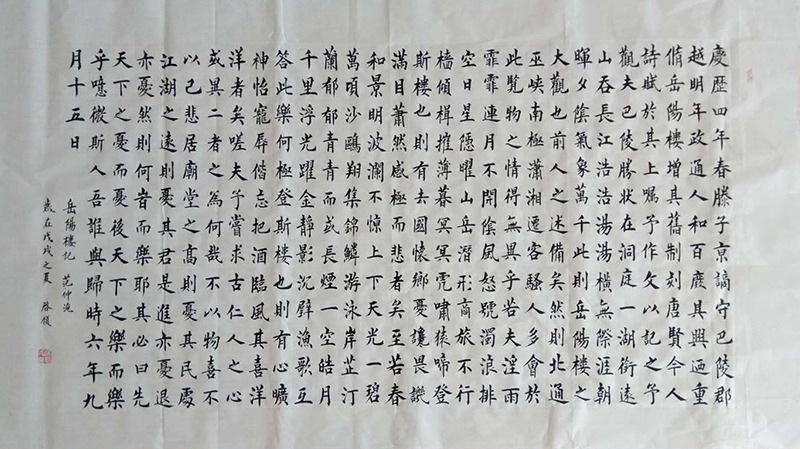 慶歷四年春滕子京謫守巴陵郡
越明年政通人和百廢具興迺重
脩岳陽樓增其舊制刻唐賢今人
詩賦於其上囑予作文以記之予
觀夫巴陵勝狀在洞庭一湖銜遠
山吞長江浩浩湯湯橫無際涯朝
暉夕陰氣象萬千此則岳陽樓之
大觀也前人之述備矣然則北通
巫峽南極瀟湘遷客騷人多會於
此覽物之情得無異乎若夫淫雨
霏霏連月不開陰風怒號濁浪排
空日星隱曜山岳潛形商旅不行
檣傾楫摧薄暮冥冥虎嘯猿啼登
斯樓也則有去國懷鄉憂讒畏譏
滿目蕭然感極而悲者矣至若春
和景明波瀾不驚上下天光一碧
萬頃沙鷗翔集錦鱗游泳岸芷汀
蘭郁郁青青而或長煙一空皓月
千里浮光躍金靜影沉璧漁歌互
答此樂何極登斯樓也則有心曠
神怡寵辱偕忘把酒臨風其喜洋
洋者矣嗟夫予嘗求古仁人之心
或異二者之為何哉不以物喜不
以己悲居廟堂之高則憂其民處
江湖之遠則憂其君是進亦憂退
亦憂然則何旹而樂耶其必曰先
天下之憂而憂後天下之樂而樂
乎噫微斯人吾誰與歸時六年九
月十五日
岳陽樓記 范仲淹
歲在戊戌之夏